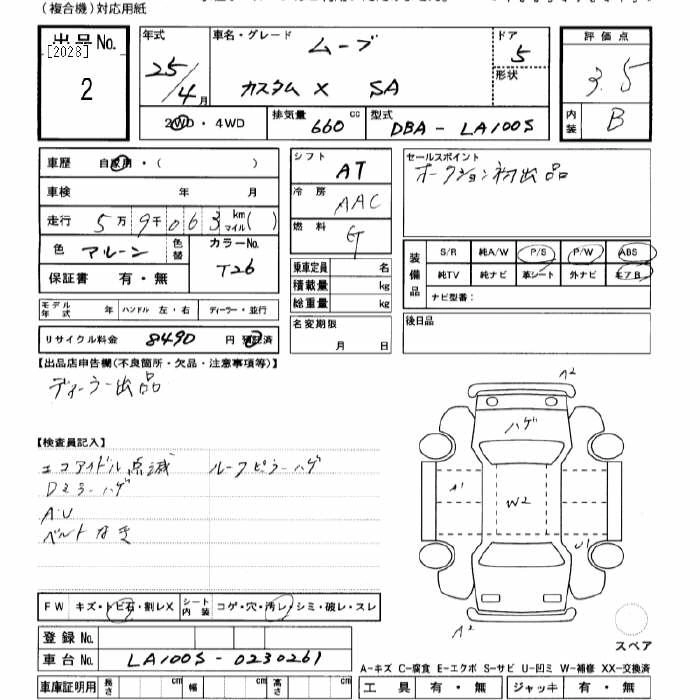 (複合機)対応用紙
出品No.
[2028]
2
年式
25/4月
車名・グレード
ムーブ
カスタム X SA
ドア
5
形状
評価点
3.5
内装
B
2WD・4WD
排気量 660 cc
型式 DBA - LA100S
車歴 自家用・( )
車検 年 月
走行 5万9千063 km マイル( )
色 マルーン
色替
カラーNo. T26
保証書 有・無
モデル年式 年 ハンドル 左・右 ディーラー・並行
リサイクル料金 8490 円 預託済
シフト AT
冷房 AAC
燃料 G
乗車定員 名
積載量 kg
総重量 kg
名変期限
月 日
セールスポイント
オークション初出品
装備品
S/R 純A/W P/S P/W ABS
純TV 純ナビ 革シート 外ナビ エアB
ナビ型番:
後日品
【出品店申告欄(不良箇所・欠品・注意事項等)】
ディーラー出品
【検査員記入】
エコアイドル点滅 ルーフピラーハゲ
Dミラーハゲ
A.U
ベルトなき
A2
ハゲ
A1
W2
U1
A2
スペア
FW キズ・トビ石・割レX シート内装 コゲ・穴・汚レ・シミ・破レ・スレ
登録No.
車台No. LA100S - 0230261
A-キズ C-腐食 E-エクボ S-サビ U-凹ミ W-補修 XX-交換済
車庫証明用 長さ cm 幅 cm 高さ cm
工具 有・無 ジャッキ 有・無